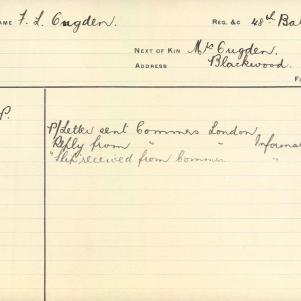 NAME F. L. Cugden REG. &C 48th Bat
NEXT OF KIN Mr Cugden.
ADDRESS Blackwood.
F
P.
P/Letter sent Commrs London
Reply from " " Informat
"Slip received from Commrs "